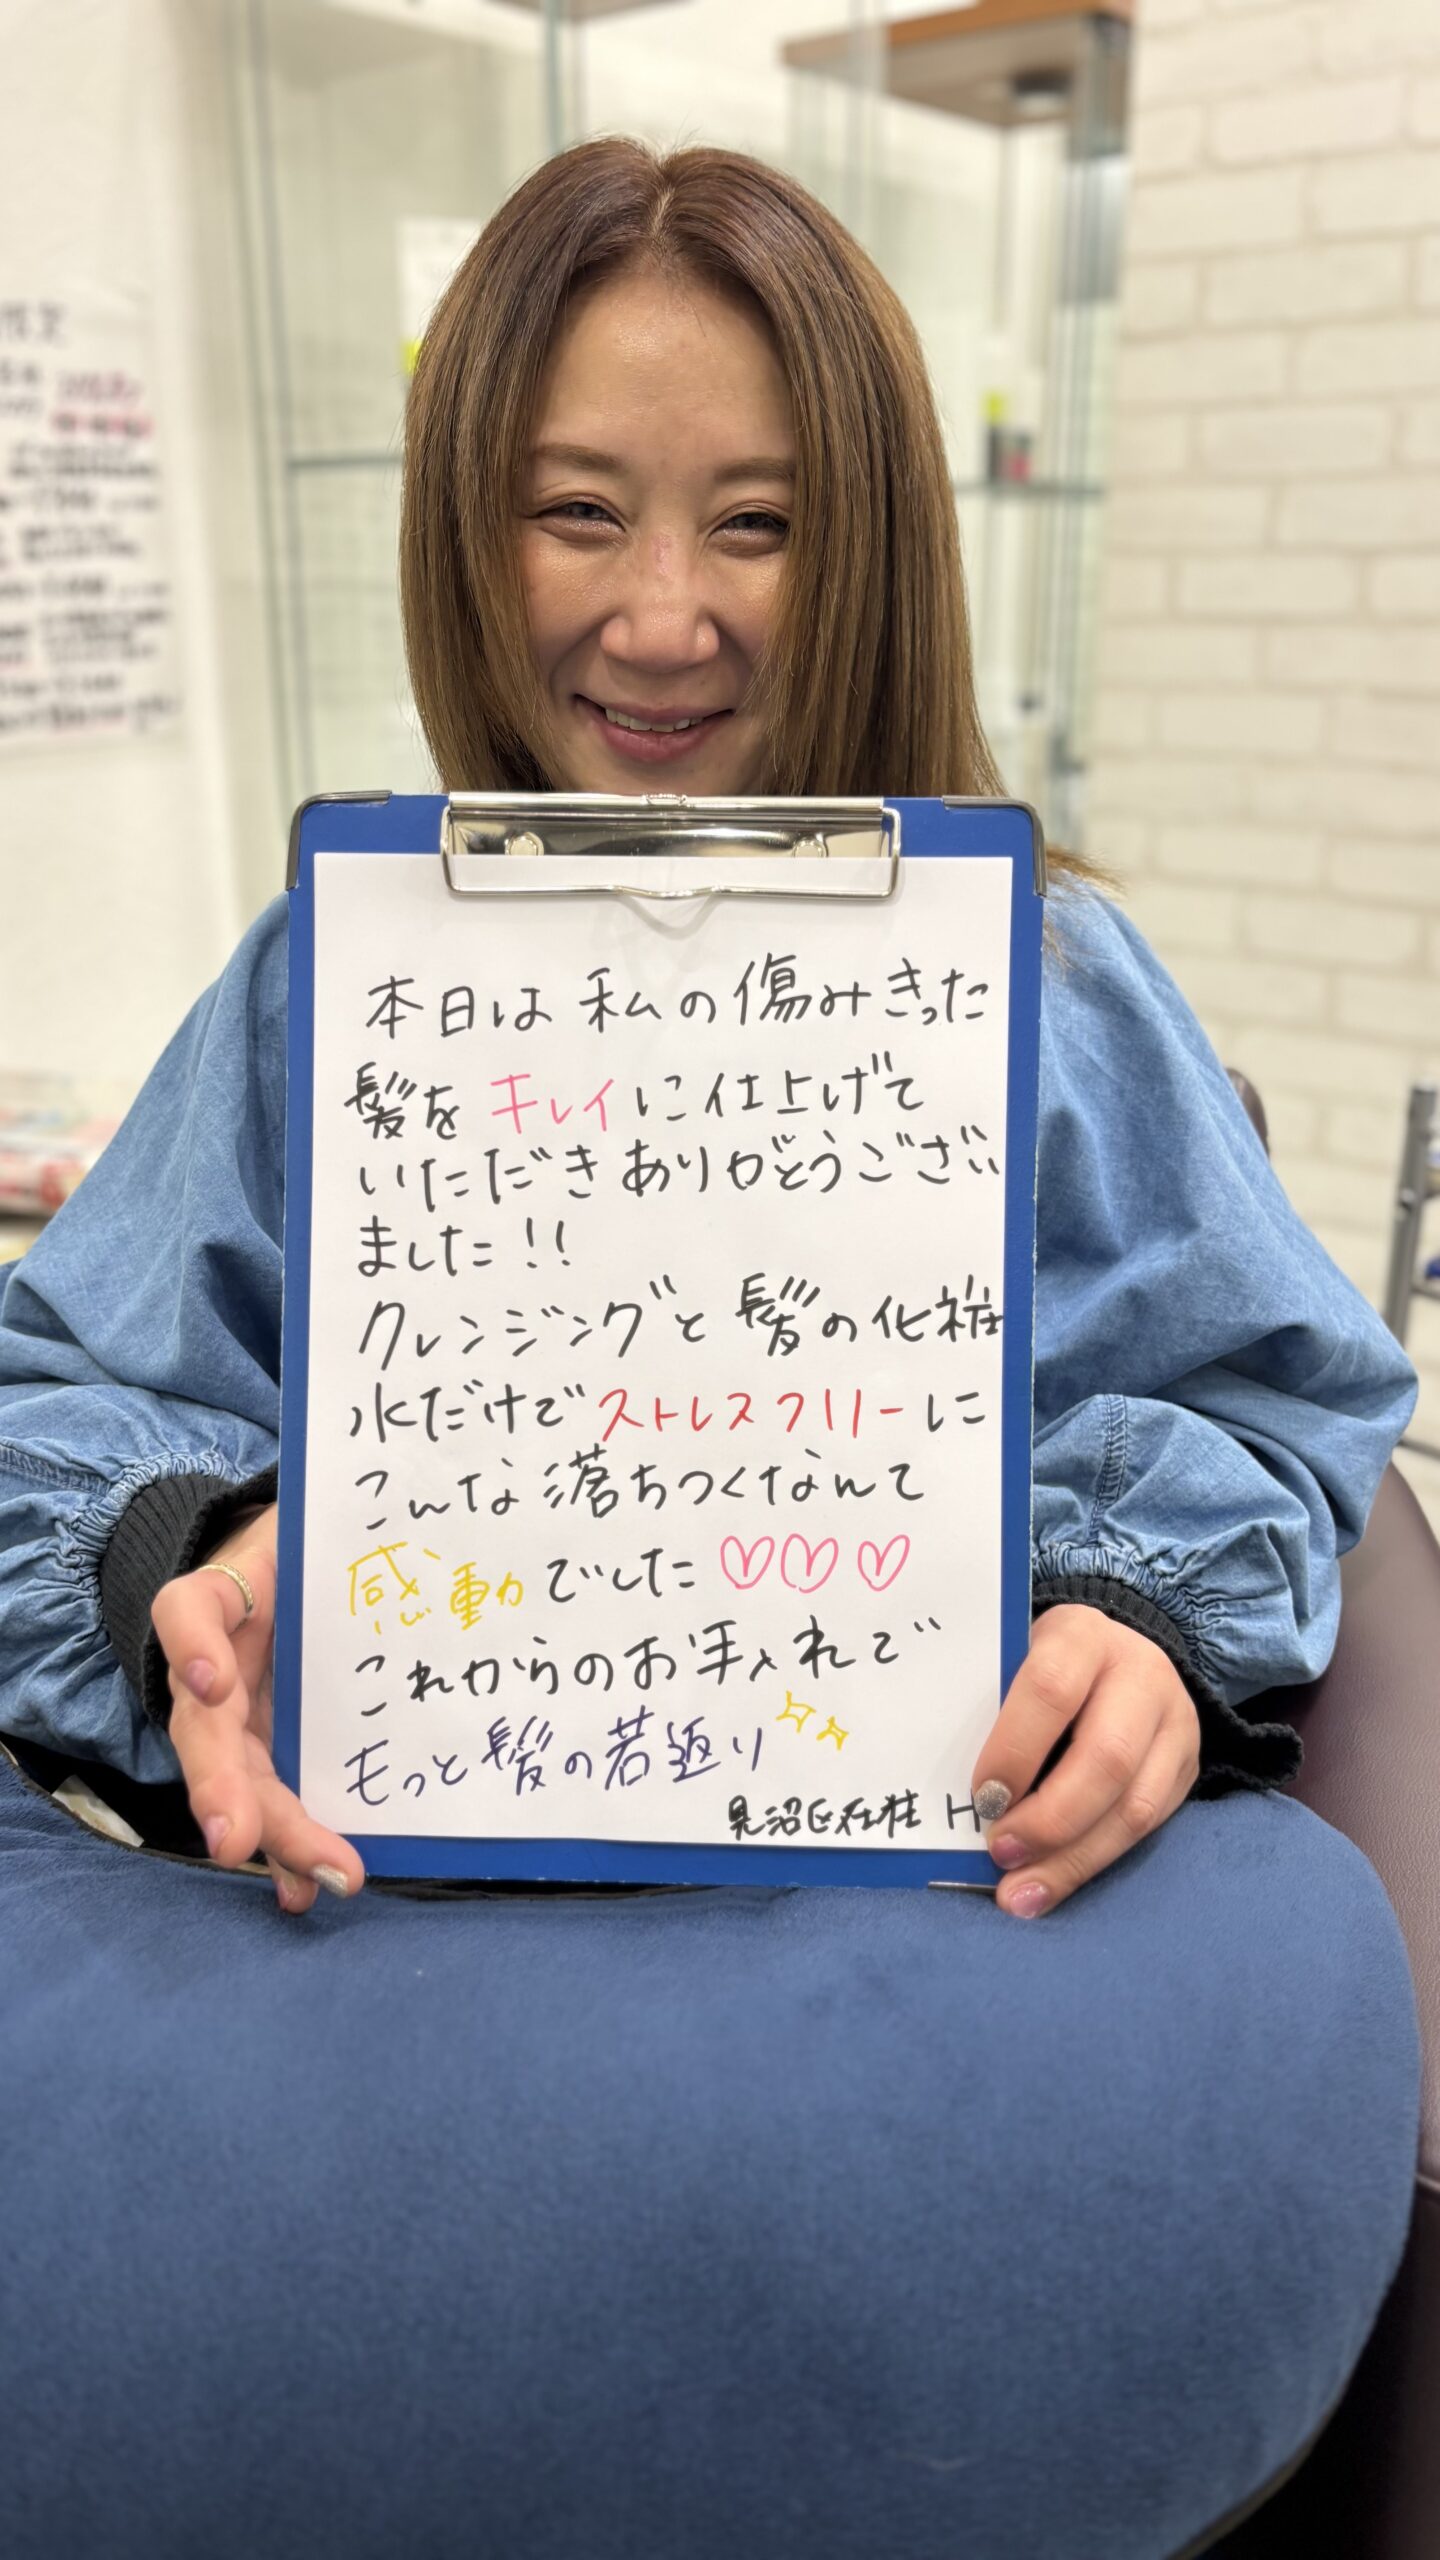 本日は私の傷みきった
髪をキレイに仕上げて
いただきありがとうござい
ました!!
クレンジングと髪の化粧
水だけでストレスフリーに
こんな落ちつくなんて
感動でした♡♡♡
これからのお手入れで
もっと髪の若返り
見沼区在住 H